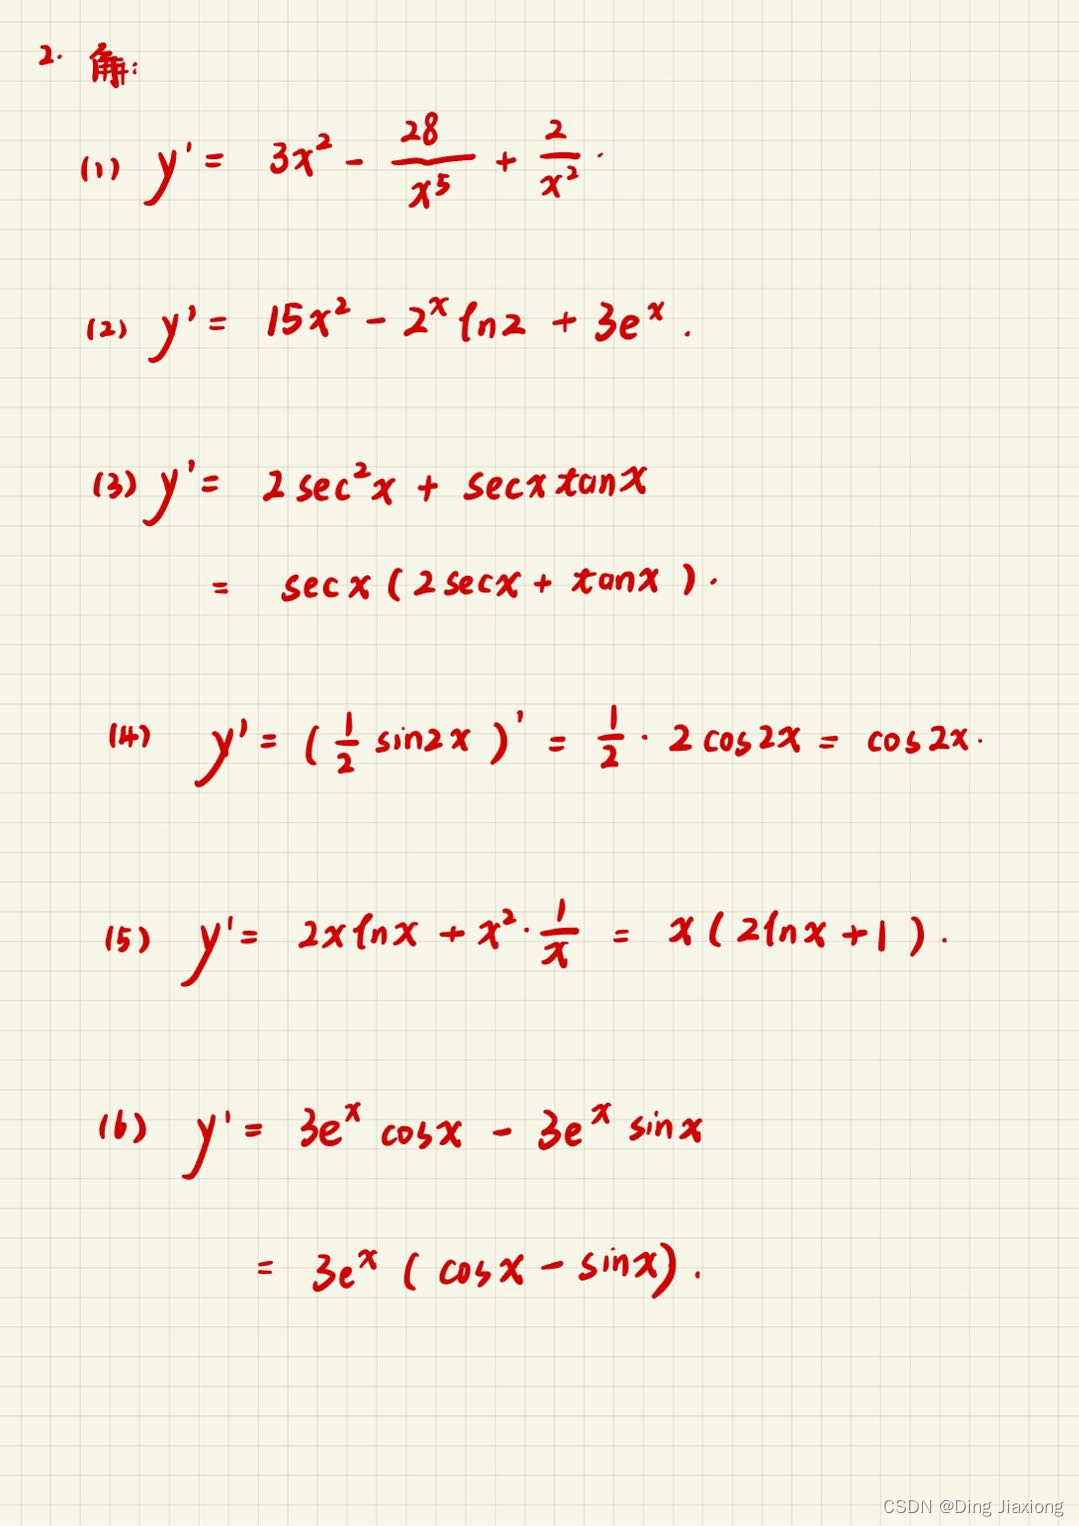 2. 解:
(1) y' = 3x² - 28/x⁵ + 2/x².
(2) y' = 15x² - 2ˣ ln2 + 3eˣ.
(3) y' = 2 sec²x + secx tanx
= secx ( 2 secx + tanx ).
(4) y' = ( 1/2 sin2x )' = 1/2 · 2 cos2x = cos2x.
(5) y' = 2x lnx + x² · 1/x = x ( 2lnx + 1 ).
(6) y' = 3eˣ cosx - 3eˣ sinx
= 3eˣ ( cosx - sinx ).
CSDN @Ding Jiaxiong